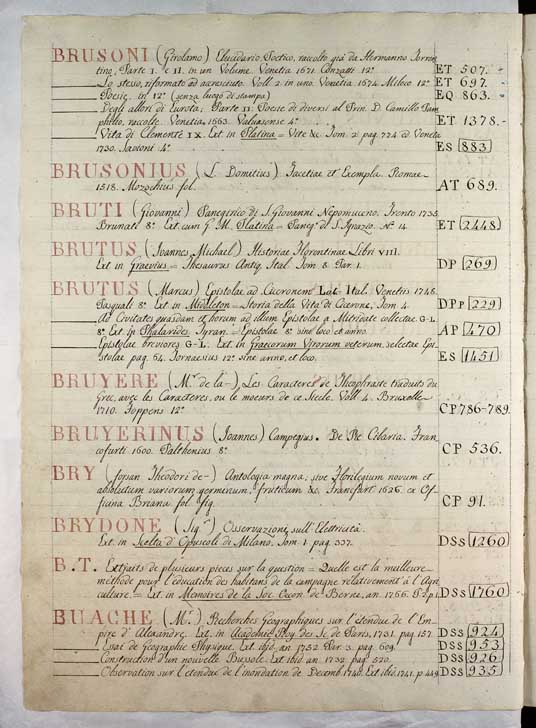 BRUSONI (Girolamo) Elucidario Poetico, raccolto già da Hermanno Torren
tino, Parte I. e II. in un Volume. Venetia 1671. Conzatti 12° ET 507.
Lo stesso, riformato ed accresciuto. Voll. 2 in uno. Venetia 1674. Miloco 12° ET 697.
Poesie, in 12° (senza luogo di stampa) EQ 863.
Degli allori di Eurota, Parte II. Poesie di diversi al Prin. D. Camillo Pam
philio, raccolte. Venetia, 1663. Valvasense 4° ET 1378.
Vita di Clemente IX. Ext. in Platina = Vite &c. Tom. 2. pag. 774 ed Veneta
1730. Savioni 4° ES 883
BRUSONIUS (L. Domitius) Facetiae et Exempla. Romae
1518. Mozochius fol. AT 689.
BRUTI (Giovanni) Panegirico di S. Giovanni Nepomuceno. Trento 1735
Brunati 8° Ext. cum G. M. Platina = Paneg.° di S. Ignazio. N.° 14. ET 2448
BRUTUS (Joannes Michael) Historiae Florentinae Libri VIII.
Ext. in Graevius = Thesaurus Antiq. Ital. Tom. 8. Par. 1. DP 269
BRUTUS (Marcus) Epistolae ad Ciceronem Lat. Ital. Venetiis 1748.
Pasquali 8° Ext. in Midleton = Storia della Vita di Cicerone, Tom. 4. DPp 229
Ad Civitates quasdam et horum ad illum Epistolae a Mitridate collectae. G-L
8° Ext. in Phalarides Tyran. = Epistolae 8° sine loco et anno. AP 470
Epistolae breviores G-L. Ext. in Graecorum Virorum veterum, selectae Epi
stolae pag. 64. Tornaesius 12° sine anno, et loco. ES 1451
BRUYERE (M.r de la-) Les Caracteres de Theophraste traduits du
Grec, avec les Caracteres, ou le moeurs de ce Siecle. Voll. 4. Bruxelle
1710. Foppens 12° CP 786-789.
BRUYERINUS (Joannes) Campegius. De Re Cibaria. Fran
cofurti 1600. Palthenius 8° CP 536.
BRY (Joan Theodori de-) Antologia magna, sive Florilegium novum et
absolutum variorum germinum, fruticum &c. Francfurt 1626. ex Of-
ficina Briana fol. fig. CP 91.
BRYDONE (Sig.r) Osservazioni sull'Elettricità.
Ext. in Scelta d'Opuscoli di Milano. Tom. 1. pag. 337. DSS 1260
B.T. Extraits de plusieurs pieces sur la question = Quelle est la meilleure
méthode pour l'éducation des habitans de la campagne relativement à l'Agri
culture. = Ext. in Memoires de la Soc. Oecon. de Berne, an. 1766. P. 2. p. 1. DSS 1760
BUACHE (M.r) Recherches Geographiques sur l'étendue de l'Em
pire d'Alexandre. Ext. in Academie Roy. des Sc. de Paris, 1731. pag. 157. DSS 924
Essai de Geographie Physique. Ext. ibid. an. 1752. Par. 3. pag. 609. DSS 953
Construction d'un nouvelle Bussole. Ext. ibid. an. 1732 pag. 520. DSS 926
Observation sur l'étendue de l'inondation de Decemb. 1740. Ext. ibid. 1741. p. 449 DSS 935